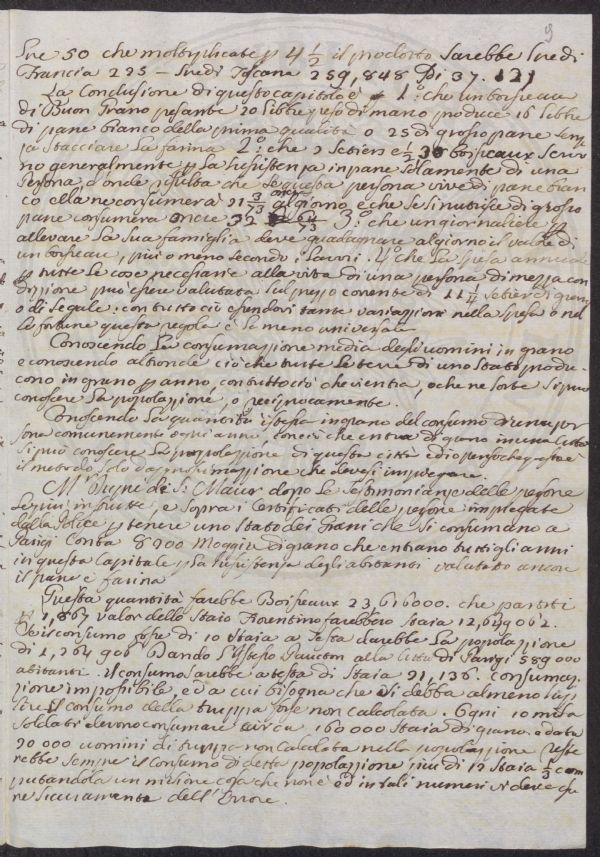 9
Lire 50 che moltiplicate p 4 1/2 il prodotto sarebbe Lire di
Francia 225 – Lire di Toscana 259,848 Di 37. 121
La Conclusione di questo capitolo è 1º: che un boisseau
di Buon Grano pesante 20 libbre peso di marco produce 16 libbre
di pane bianco della prima qualità o 25 di grosso pane senza
stacciare la farina 2º: che 2 Setiers e 1/2 30 Boisseaux servono
generalmente p la sussistenza in pane solamente di una
Persona, d'onde risulta che se questa persona vive di pane bianco
ella ne consumerà 21 3/73 once al giorno, e che se si nutrisce di grosso
pane consumerà once 32 3º: che un giornaliere p
allevare la sua famiglia deve guadagnare al giorno il valore di
un boisseau, più o meno secondo i lavori. 4º che la spesa annuale
p tutte le cose necessarie alla vita di una persona di mezza condizione
può essere valutata sul prezzo corrente di 11 setier di grano
o di segale. con tutto ciò essendovi tante variazioni nella spesa o nelle
fortune questa regola è la meno universale
Conoscendo la consumazione media degli uomini in grano
e conoscendo altronde ciò che tutte le terre di uno stato producono
in grano p anno, con tutto ciò che vi entra, o che ne sorte si può
conoscere la popolazione, o reciprocamente.
Conoscendo la quantità istessa in grano del consumo di una persona
comunemente ogni anno, e ciò che entra di grano in una città
si può conoscere la popolazione di questa città ed io penso che questo è
il metodo solo d'approssimazione che devesi impiegare.
Mr. Dupré di S. Maur dopo le Testimonianze delle persone
le più instrutte, e sopra i Certificati delle persone impiegate
dalla Police p tenere uno stato dei grani che si consumano a
Parigi conta 8200 Moggia di grano che entrano tutti gli anni
in questa Capitale p la sussistenza degli abitanti valutato ancora
il pane e farina
Questa quantità farebbe Boisseaux 23,616000. che partiti
p 1,867 valor dello Staio Fiorentino farebbero Staia 12,649062.
Se il consumo fosse di 10 Staia a Testa darebbe la popolazione
di 1,264 906 Dando l'istesso Paucton alla Città di Parigi 589 000
abitanti. il consumo sarebbe a testa di Staia 21,136. consumazione
impossibile, ed a cui bisogna che si debba almeno supplire
il consumo della truppa forse non calcolata. Ogni 10 mila
soldati devono consumare circa 160 000 Staia di grano. e data
20 000 uomini di truppa non calcolata nella popolazione resterebbe
sempre il consumo di detta popolazione più di 12 Staia 1/3 computandola
un milione cosa che non è ed in tali numeri vi deve essere
sicuramente dell'Errore.